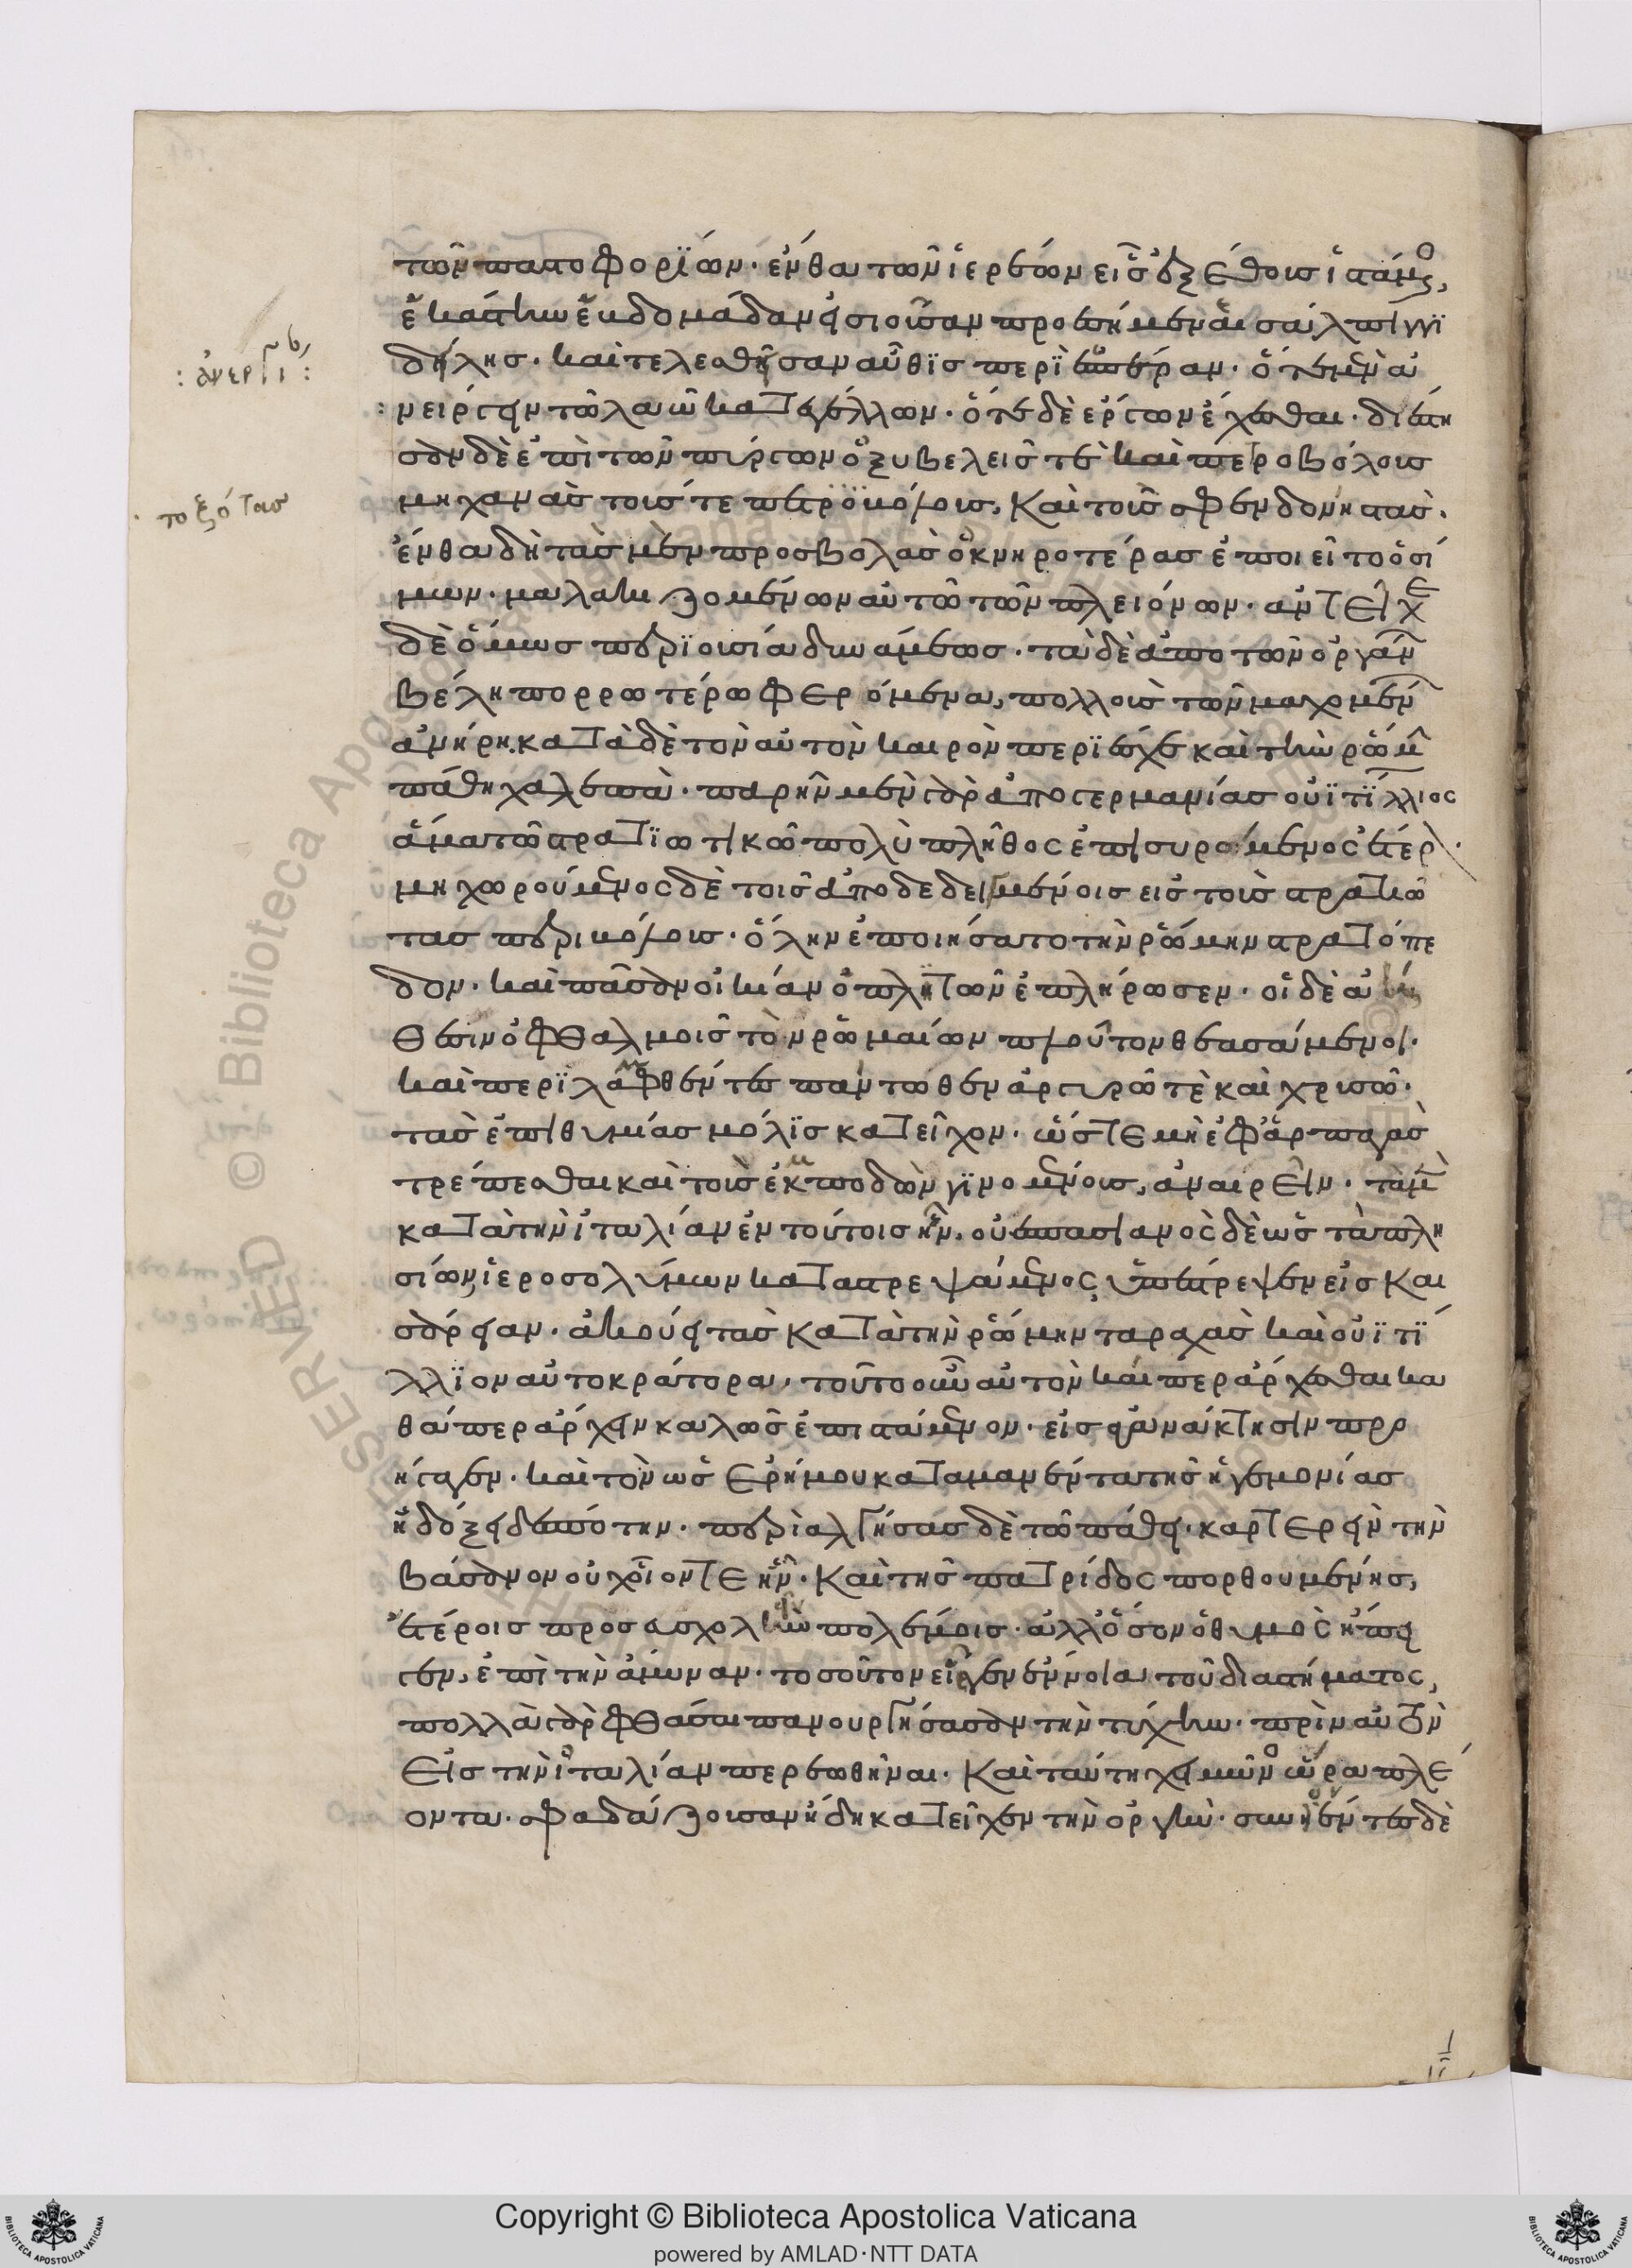 τῶν παστοφορϊῶν· ἔνθα τῶν ἱερέων εἷς ἐξ ἔθους ἱστάμενος,
ἑκάστην ἑβδομάδα εἰσιοῦσαν προεσήμαινε σάλπιγγι
δείλης· καὶ τελεσθεῖσαν αὖθϊς περὶ ἑσπέραν· ὅτε μὲν ἀ
νείργειν τῶ λαῶ καταγγέλλων· ὅτε δὲ ἔργων ἔχεσθαι· διέστη
σεν δὲ ἐπὶ τῶν πύργων ὀξυβελεῖς τὲ καὶ πετροβόλους
μηχανὰς τούς τε
ἔνθα δὴ τὰς μὲν προσβολὰς ὀκνηροτέρας ἐποιεῖτο ὁ σί
μων· μαλακιζομένων αὐτῶ τῶν πλειόνων· ἀντεῖχε
δὲ ὅμως περϊουσία δυνάμεως· τὰ δὲ ἀπὸ τῶν ὀργάνων
βέλη πορρωτέρω φερόμενα, πολλοὺς τῶν μαχομένων
ἀνήρη. κατὰ δὲ τὸν αὐτὸν καιρὸν περϊέσχε καὶ τὴν ῥώμην
πάθη χαλεπά· παρῆν μὲν γὰρ ἀπὸ γερμανίας οὐϊτέλλιος
ἅμα τῶ στρατϊωτικῶ πολὺ πλῆθος ἐπισυρόμενος ἕτερον·
μὴ χωρούμενος δὲ τοῖς ἀποδεδειγμένοις εἰς τοὺς στρατιώ
τας περιβόλοις· ὅλην ἐποιήσατο τὴν ῥώμην στρατόπε
δον· καὶ πᾶσαν οἰκίαν ὁπλιτῶν ἐπλήρωσεν· οἱ δὲ
ὀφθαλμοῖς τὸν ῥωμαίων πλοῦτον θεασάμενοι·
καὶ περϊλαμφθέντες πάντωθεν ἀργύρω τὲ καὶ χρυσῶ·
τὰς ἐπιθυμίας μόλϊς κατεῖχον· ὥστε μὴ ἐφ᾽ ἁρπαγὰς
τρέπεσθαι καὶ τοὺς ἐκποδὼν γϊνομένους, ἀναιρεῖν· τὰ μὲν
κατὰ τὴν ἰταλίαν ἐν τούτοις ἦν. οὐεσπασιανὸς δὲ ὡς τὰ πλη
σίον ἱεροσολύμων καταστρεψάμενος ὑπέστρεψεν εἰς και
σάρειαν· ἀκούει τὰς κατὰ τὴν ῥώμην ταραχὰς καὶ οὐϊτέ
λλϊον αὐτοκράτορα, τοῦτο αὐτὸν καίπερ ἄρχεσθαι κα
θάπερ ἄρχειν καλῶς ἐπιστάμενον· εἰς ἀγανάκτησιν προ
ήγαγεν· καὶ τὸν ὡς ἐρήμου καταμανέντα τῆς ἡγεμονίας
ἠδόξει δεσπότην· περιαλγήσας δὲ τῶ πάθει· καρτερεῖν τὴν
βάσανον οὐχ οἷόντε ἦν· καὶ τῆς πατρίδος πορθουμένης,
ἑτέροις προσασχολεῖν πολέμοις· ἀλλ᾽ ὅσον ὁ θυμὸς ἤπει
γεν, ἐπὶ τὴν ἄμυναν· τοσοῦτον εἶργεν ἔννοια τοῦ διαστήματος,
πολλὰ γὰρ φθάσαι πανουργήσασαν τὴν τύχην· πρὶν αὐτὸν
εἰς τὴν ἰταλίαν περεωθῆναι· καὶ ταύτη χειμῶνος ὥρα πλέ
οντα· σφαδάζουσαν ἤδη κατεῖχεν τὴν ὀργήν· συνιέντες δὲ
τοξότας